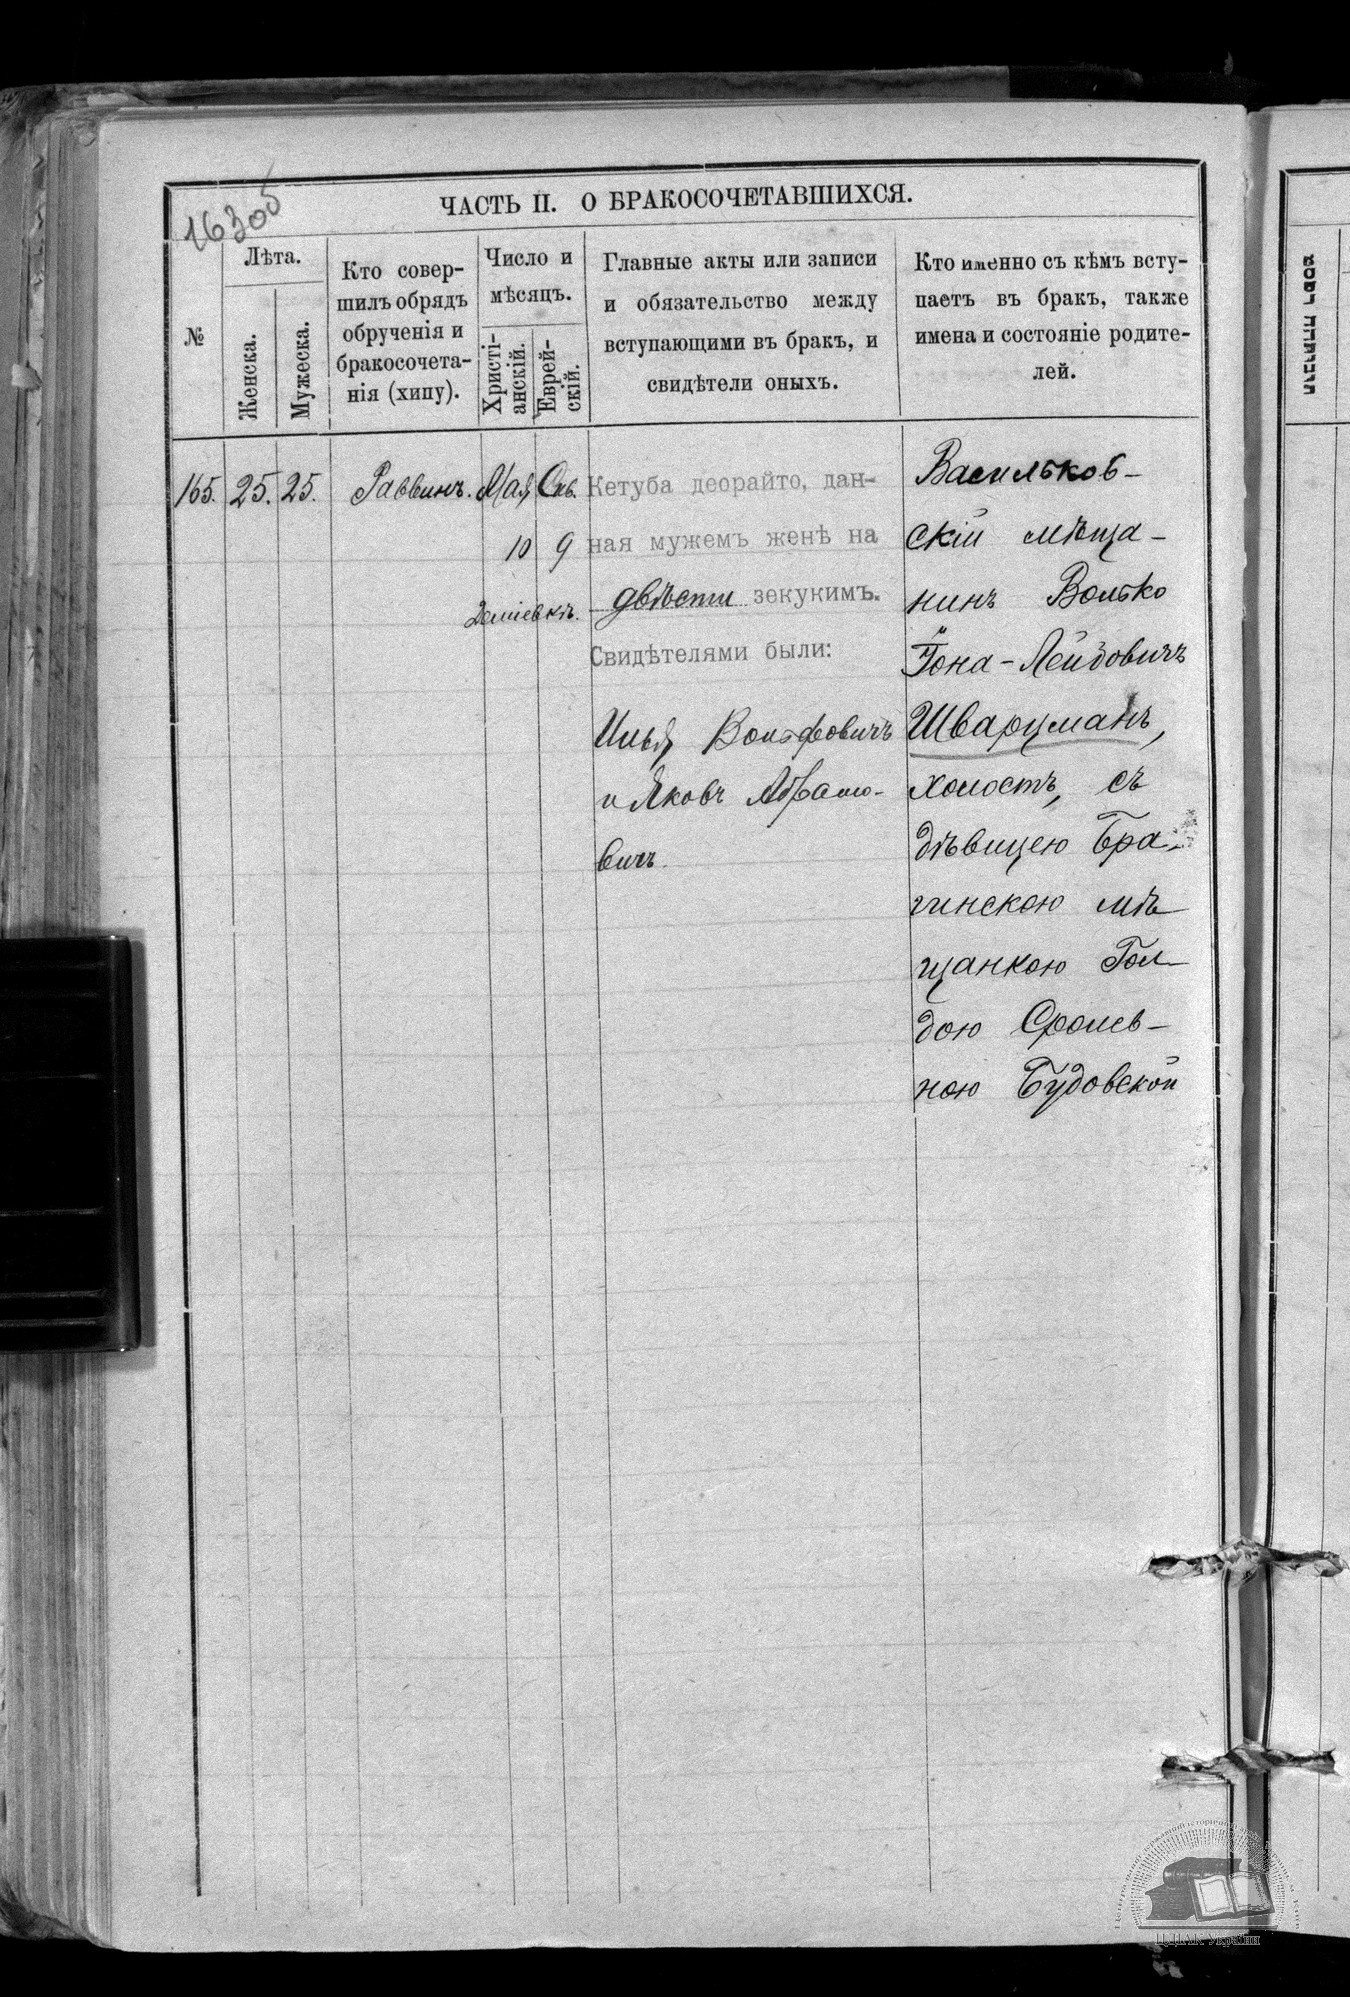 16305
ЧАСТЬ II. О БРАКОСОЧЕТАВШИХСЯ.
№
Лѣта.
Женска.
Мужеска.
Кто совер-
шилъ обрядъ
обрученія и
бракосочета-
нія (хипу).
Число и
мѣсяцъ.
Христі-
анскій.
Еврей-
скій.
Главные акты или записи
и обязательство между
вступающими въ бракъ, и
свидѣтели оныхъ.
Кто именно съ кѣмъ всту-
паетъ въ бракъ, также
имена и состояніе родите-
лей.
165. 25. 25. Раввинъ. Мая
10 9
Деміевкѣ.
Кетуба деорайто, дан-
ная мужемъ женѣ на
двѣсти зекукимъ.
Свидѣтелями были:
Илья Вольфовичъ
и Яковъ Абрамо-
вичъ.
Васильков-
скій мѣща-
нинъ Волько
Іона-Лейбовичъ
Шварцманъ,
холостъ, съ
дѣвицею Бра-
гинскою мѣ
щанкою Гол-
дою Сролев-
ною Будовской
ЦДІАК України